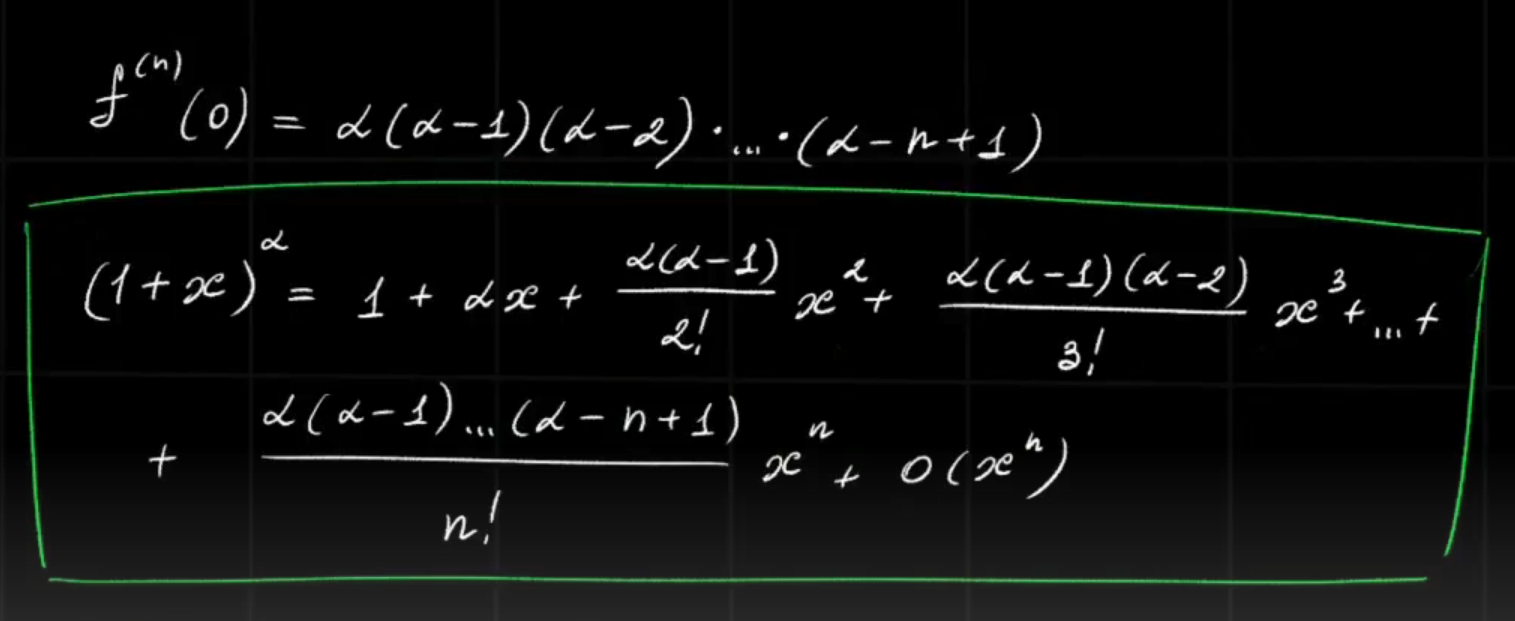 f⁽ⁿ⁾(0) = α(α-1)(α-2)·...·(α-n+1)
(1+x)^α = 1 + αx + α(α-1)/2! x² + α(α-1)(α-2)/3! x³ + ... +
+ α(α-1)...(α-n+1)/n! xⁿ + o(xⁿ)